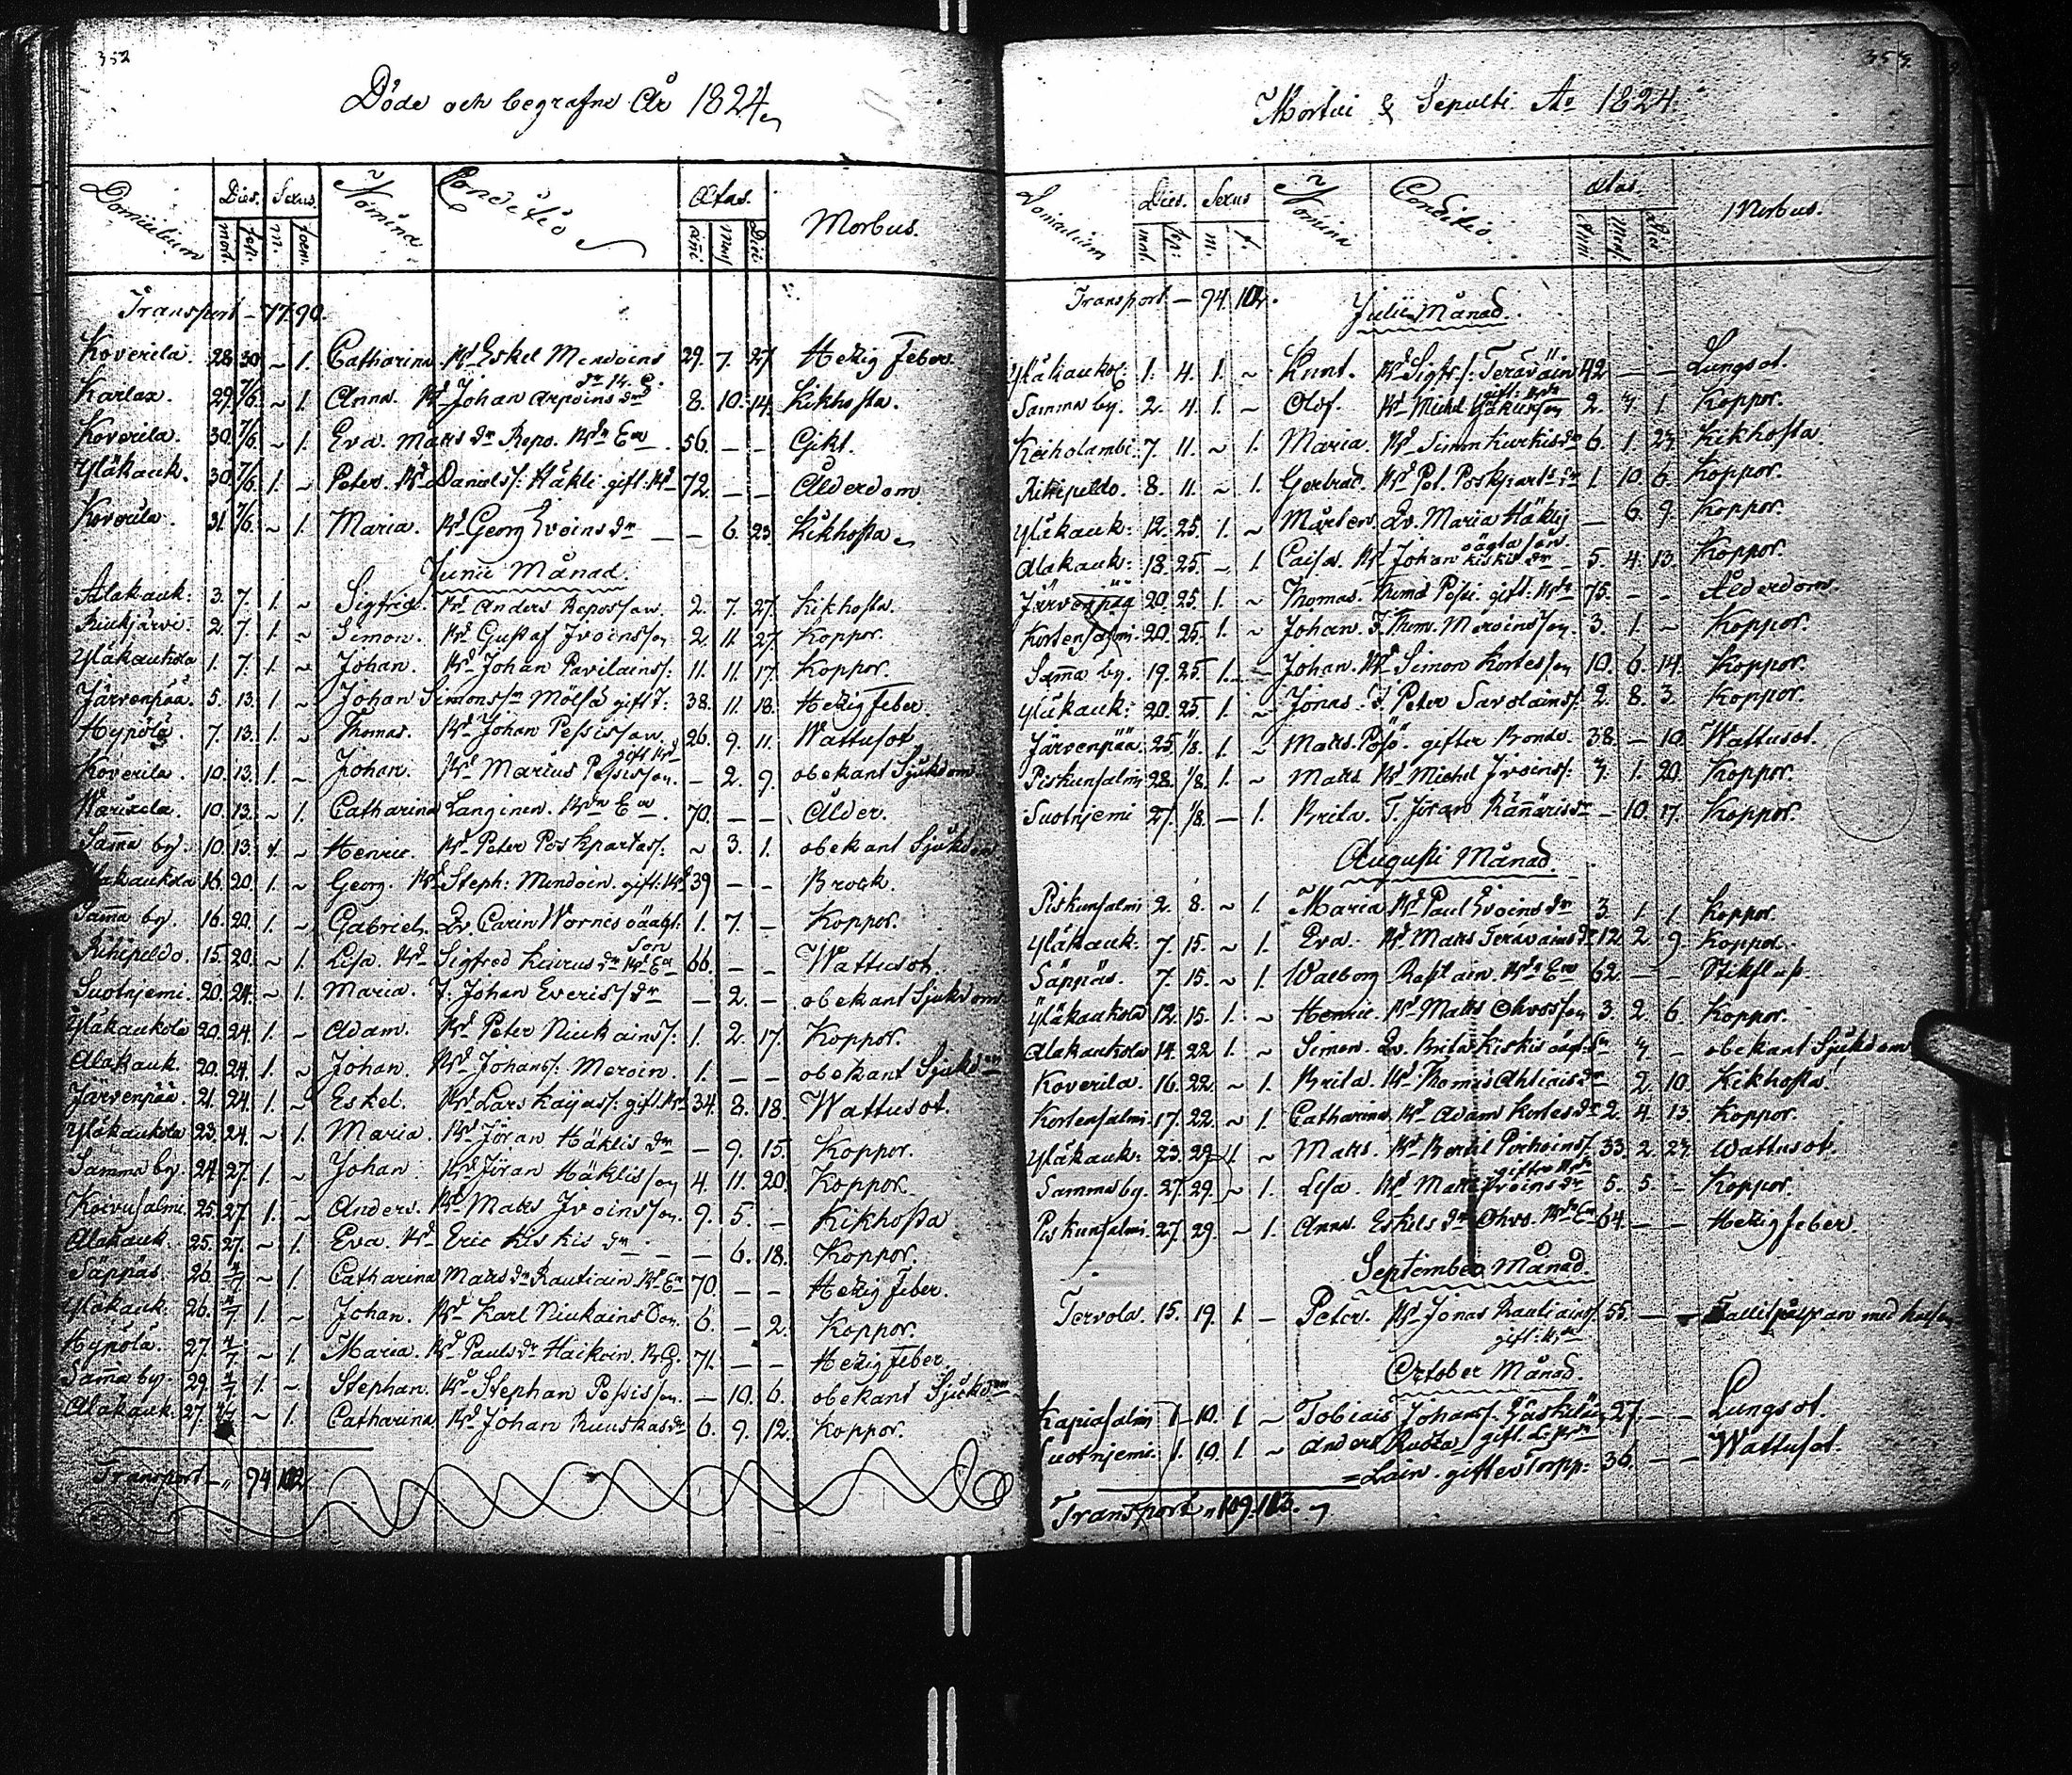 352
Döde och begrafne År 1824
Domicilium Dies. Sexus. Nomina Conditio Ætas. Morbus.
mort. sep. m. foem. Anni Mens Dies
Transport - 77. 90.
Koverila. 28. 30. ~ 1. Catharina Bd Eskel Mendoins 29. 7. 27. Hetzig Feber.
dr 14. C.
Karlax. 29. 7/6. ~ 1. Anna. Bd Johan Arpoins dr 8. 10. 14. Kikhosta.
Koverila. 30. 7/6. ~ 1. Eva Matts dr Repo. Bde Ea 56. – – Gikt.
Yläkauk. 30. 7/6. 1. ~ Peter Bd Daniels/: Häkli gift: Bd 72. – – Ålderdom
Koverila. 31. 7/6. ~ 1. Maria. Bd Georg Ivoins dr – 6. 23. Kikhosta
Junii Månad.
Alakauk: 3. 7. 1. ~ Sigfrid. Bd Anders Repos/on 2. 7. 27. Kikhosta.
Riukjärvi. 2. 7. 1. ~ Simon. Bd Gustaf Ivoins/on 2. 11. 27. Koppor.
Yläkaukola 1. 7. 1. ~ Johan. Bd Johan Pavilains/: 11. 11. 17. Koppor.
Järvenpää. 5. 13. 1. ~ Johan Simons/n Mölsä gift T: 38. 11. 18. Hetzig feber.
Hypölä. 7. 13. 1. ~ Thomas. Bd Johan Pessis/on 26. 9. 11. Wattusot
gift Bd
Koverila. 10. 13. 1. ~ Johan. Bd Marius Pessis/on. – 2. 9. obekant Sjukdom
Warixela. 10. 13. ~ 1. Catharina Langinen. Bde Ea 70. – – Ålder.
Samma by. 10. 13. 1. ~ Henric. Bd Peter Poskpartas/: ~ 3. 1. obekant Sjukdom
Alakaukola 16. 20. 1. ~ Georg. Bd Steph: Mendoin. gift: Bd 39 – – Brock.
Samma by. 16. 20. 1. ~ Gabriel. Qv. Carin Wornis oägt. 1. 7. – Koppor.
Son
Rihipeldo. 15. 20. ~ 1. Lisa. Bd Sigfred Keurus dr Bd Ea 66. – – Wattusot.
Suotnjemi. 20. 24. ~ 1. Maria. T. Johan Everis/ dr – 2. – obekant Sjukdom
Yläkaukola 20. 24. 1. ~ Adam. Bd Peter Niukains/: 1. 2. 17. Koppor.
Alakauk. 20. 24. 1. ~ Johan. Bd Johans/: Meroin. 1. – – obekant Sjukdom
Järvenpää. 21. 24. 1. ~ Eskel. Bd Lars Kaijas/: gift. Bd 34. 8. 18. Wattusot.
Yläkaukola 23. 24. ~ 1. Maria. Bd Jöran Häklis dr – 9. 15. Koppor.
Samma by. 24. 27. 1. ~ Johan. Bd Jöran Häklis/on 4. 11. 20. Koppor.
Koivusalmi. 25. 27. 1. ~ Anders. Bd Matts Ivoins/on. 9. 5. – Kikhosta
Alakauk. 25. 27. ~ 1. Eva. Bd Eric Kiskis dr – 6. 18. Koppor.
Säppäs. 26. 4/7 ~ 1. Catharina Matts dr Rautiain. Bd Ea 70. – – Hetzig feber.
Yläkauk. 26. 4/7 1. ~ Johan. Bd Karl Niukains Son. 6. – 2. Koppor.
Hypölä. 27. 4/7 ~ 1. Maria. Bd Pauls dr Haikoin. B.G. 71. – – Hetzig Feber
Samma by. 29. 4/7 1. ~ Stephan. Bd Stephan Pessis/on. – 10. 6. obekant Sjukdom
Alakauk. 27. 4/7 ~ 1. Catharina Bd Johan Ruuskas dr 6. 9. 12. Koppor.
Transport – 94. 102
353.
Mortui & Sepulti Ao 1824
Domicilium Dies. Sexus Nomina Conditio. Ætas. Morbus.
mort sep: m. f. Anni Mens. Dies.
Transport. – 94. 102.
Julii Månad.
Yläkaukol. 1. 4. 1. ~ Knut. Bd Sigfr:/: Teräväin 42 – – Lungsot.
gift. Bde
Samma by. 2. 4. 1. ~ Olof. Bd Michel Häkkis/on 2. 7. 1. Koppor.
Keiholambi. 7. 11. ~ 1. Maria. Bd Simon Kurkis dr 6. 1. 27. Kikhosta
Rihipeldo. 8. 11. ~ 1. Gertrud. Bd Pet. Poskpart: dr 1. 10. 6. Koppor.
Yläkauk: 12. 25. 1. ~ Mårten. Qv. Maria Häklis – 6. 9. Koppor.
oägta son.
Alakauk: 18. 25. ~ 1. Caisa. Bd Johan Kiskis dr 5. 4. 13. Koppor.
Järvenpää 20. 25. 1. ~ Thomas. Pessi. gift. Bd 75. – – Ålderdom.
Kortensalmi. 20. 25. 1. ~ Johan. T. Thom. Meroins/on. 3. 1. ~ Koppor.
Samma by. 19. 25. 1. – Johan. Bd Simon Kortes/on 10. 6. 14. Koppor.
Yläkauk: 20. 25. 1. ~ Jonas. T. Peter Savolains/: 2. 8. 3. Koppor.
Järvenpää. 25. 1/8. 1. ~ Matts. Posö. gifter Bonde. 38. – 10. Wattusot.
Piskunsalmi 28. 1/8. 1. ~ Matts Bd Michel Ivoins/: 7. 1. 20. Koppor.
Suotnjemi 27. 1/8. – 1. Brita. T. Jöran Rännäris dr – 10. 17. Koppor.
Augusti Månad.
Piskunsalmi 2. 8. ~ 1. Maria Bd Paul Ivoins dr 3. 1. 1. Koppor.
Yläkauk: 7. 15. ~ 1. Eva. Bd Matts Teräväins dr 12. 2. 9. Koppor.
Säppäs. 7. 15. ~ 1. Walborg Rastain. Bde Ea 62. – – Stikfluss.
Yläkaukola 12. 15. 1. ~ Henric. Bd Matts Ohvos/on 3. 2. 6. Koppor.
Alakaukola 14. 22 1. ~ Simon. Qv. Brita Kiskis oäg: Sn 7 – obekant Sjukdom
Koverila. 16. 22. ~ 1. Brita. Bd Thomas Ahtiais dr 2. 10. Kikhosta
Kortensalmi 17. 22. ~ 1. Catharina Bd Adam Kortes dr 2. 4. 13. Koppor.
Yläkauk: 23. 29. 1. ~ Matts. Bd Bertil Perhoins/: 33. 2. 27. Wattusot.
gifter Bde
Samma by. 27. 29. ~ 1. Lisa. Bd Matts Ivoins dr 5. 5. – Koppor.
Piskunsalmi 27. 29. ~ 1. Anna. Eskels dr Ohvo. Bde Ea 64. – – Hetzig feber.
September Månad.
Tervola. 15. 19. 1. – Peter. Bd Jonas Rautiains/: 55. – – med
gift: Bde
October Månad.
Kapiasalmi 1 – 10. 1. ~ Tobias Johans/: 27. – – Lungsot.
Suotnjemi. 1. 10. 1. ~ Anders gift.
= Lain. gifter Torpp: 36. – – Wattusot.
Transport 109. 113.